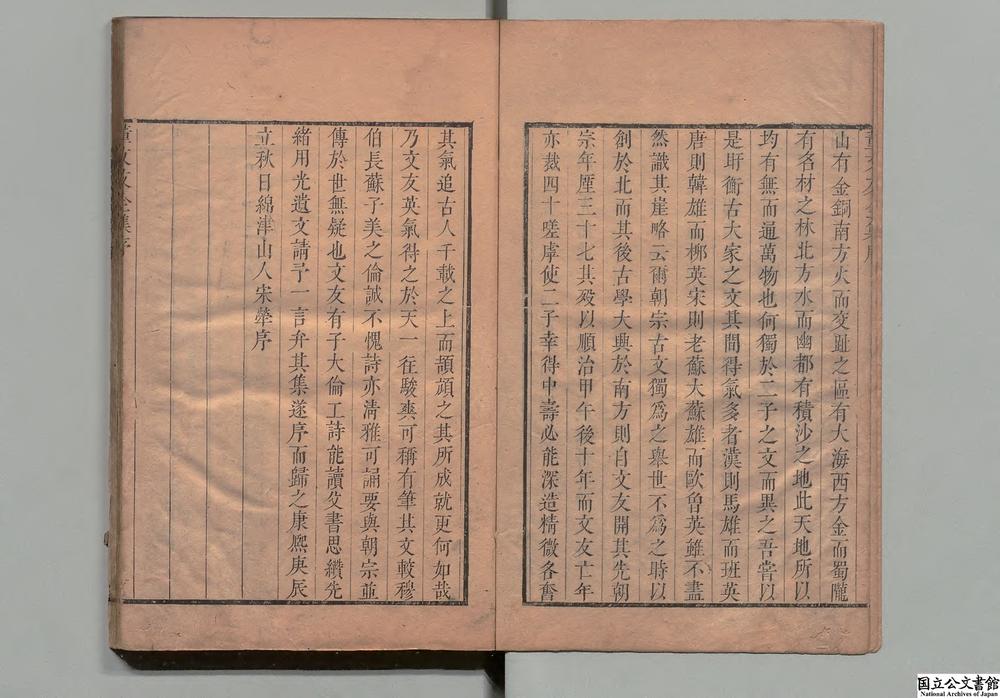 山有金銅南方火而交趾之區有大海西方金而蜀隴
有名材之林北方水而幽都有積沙之地此天地所以
均有無而通萬物也何獨於二子之文而異之吾嘗以
是評衡古大家之文其間得氣多者漢則馬雄而班英
唐則韓雄而栁英宋則老蘇大蘇雄而歐曾英雖不盡
然識其崖略云爾朝宗古文獨爲之舉世不爲之時以
創於北而其後古學大興於南方則自文友開其先朝
宗年厪三十七其歿以順治甲午後十年而文友亡年
亦裁四十嗟虖使二子幸得中壽必能深造精微各奮
其氣追古人千載之上而頡頏之其所成就更何如哉
乃文友英氣得之於天一徃駿爽可稱有筆其文較穆
伯長蘇子美之倫誠不愧詩亦淸雅可誦要與朝宗並
傳於世無疑也文友有子大倫工詩能讀父書思纘先
緒用光遺文請予一言弁其集遂序而歸之康熈庚辰
立秋日綿津山人宋犖序
董文友全集序
国立公文書館
National Archives of Japan